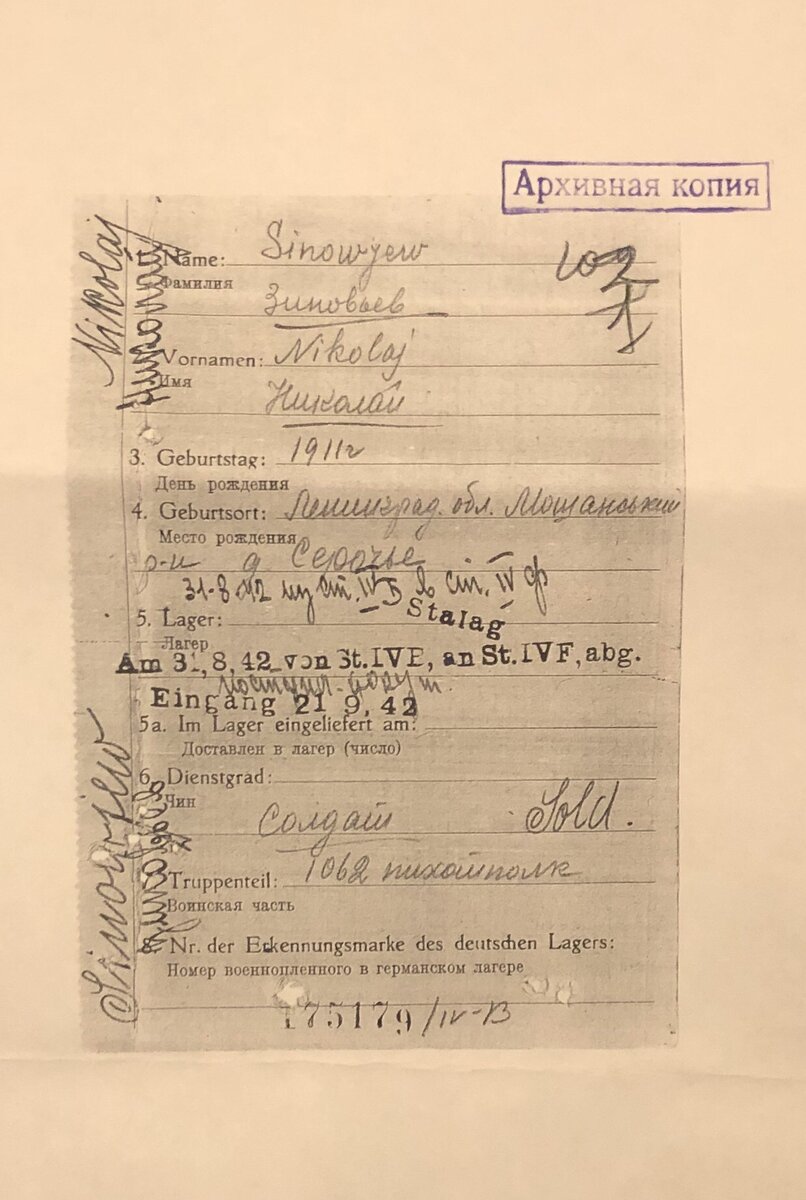 Архивная копия
1. Name: Sinowjew
Фамилия
Зиновьев
Vornamen: Nikolaj
Имя
Николай
3. Geburtstag: 1911г
День рождения
4. Geburtsort: Ленинград. обл. Мошанський
Место рождения
р-н д
31-8-42 из ст. IV B в ст. IV ф
5. Lager: Stalag
Лагер
Am 31,8,42 von St.IVB, an St.IVF, abg.
Eingang 21 9,42
5a. Im Lager eingeliefert am:
Доставлен в лагер (число)
6. Dienstgrad:
Чин
Солдат Sold.
Truppenteil: 1062 пихотполк
Воинская часть
8. Nr. der Erkennungsmarke des deutschen Lagers:
Номер военнопленного в германском лагере
175179/IV-B
Nikolaj
Николай
Sinowjew